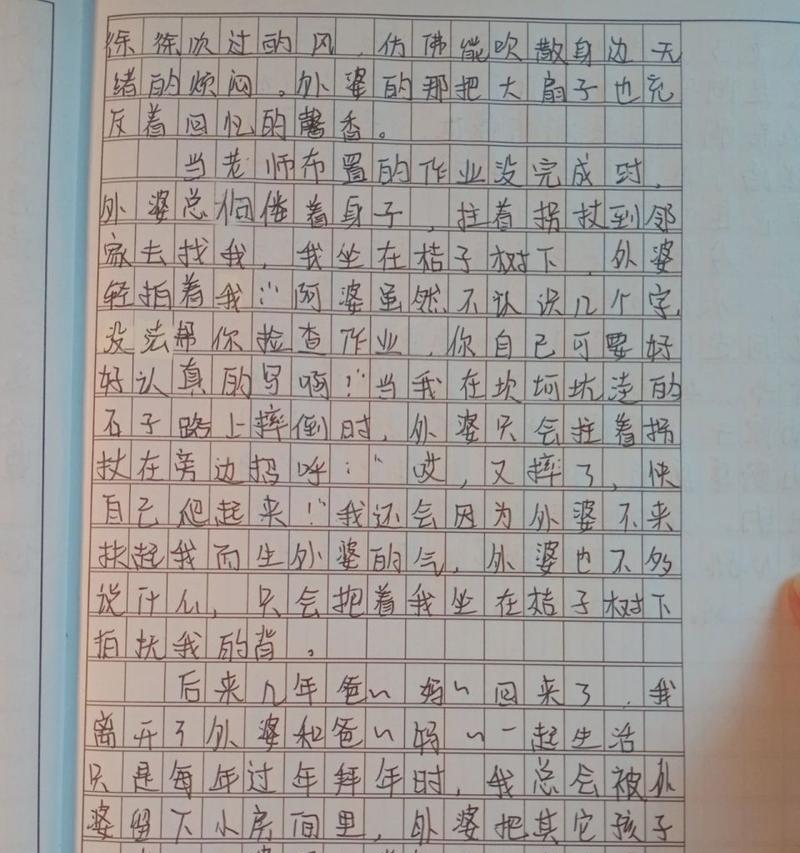 徐徐吹过的风，仿佛能吹散身边无
绪的烦闷。外婆的那把大扇子也充
斥着回忆的馨香。
当老师布置的作业没完成时，
外婆总佝偻着身子，拄着拐杖到邻
家去找我，我坐在桔子树下，外婆
轻拍着我：“阿婆虽然不认识几个字，
没法帮你检查作业，你自己可要好
好认真的写啊！”当我在坎坷坑洼的
石子路上摔倒时，外婆只会拄着拐
杖在旁边招呼：“哎，又摔了，快
自己爬起来！”我还会因为外婆不来
扶起我而生外婆的气，外婆也不多
说什么，只会把着我坐在桔子树下
拍抚我的背。
后来几年爸~妈~回来了，我
离开了外婆和爸~妈~一起生活
只是每年过年拜年时，我总会被外
婆留下小房间里，外婆把其它孩子